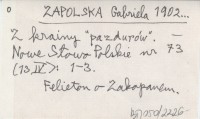 0
ZAPOLSKA Gabriela 1902...
Z krainy "pazdurów". –
Nowe Słowo Polskie nr 73
(13 IV) s. 1-3.
Felieton o Zakopanem.